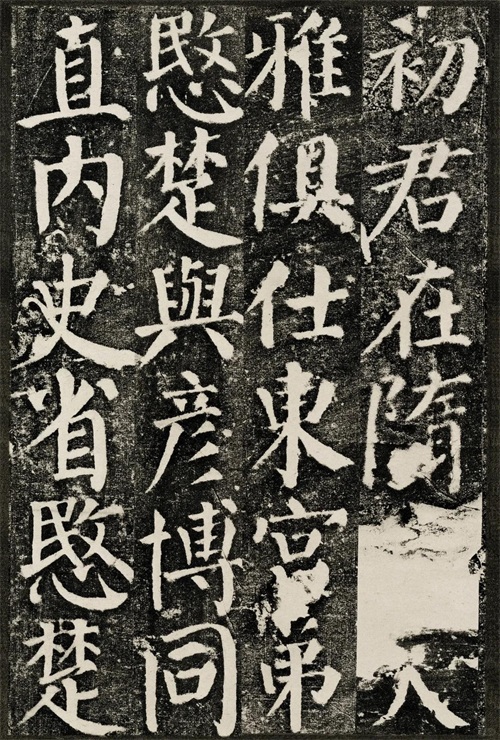 初君在隋
雅俱仕東宮弟
愍楚與彦博同
直内史省愍楚